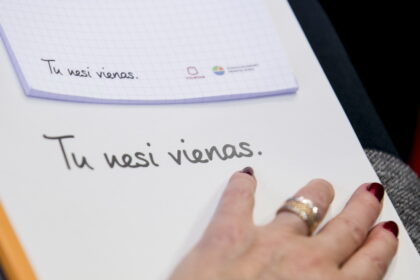 Tu nesi vienas.
Tu nesi vienas.